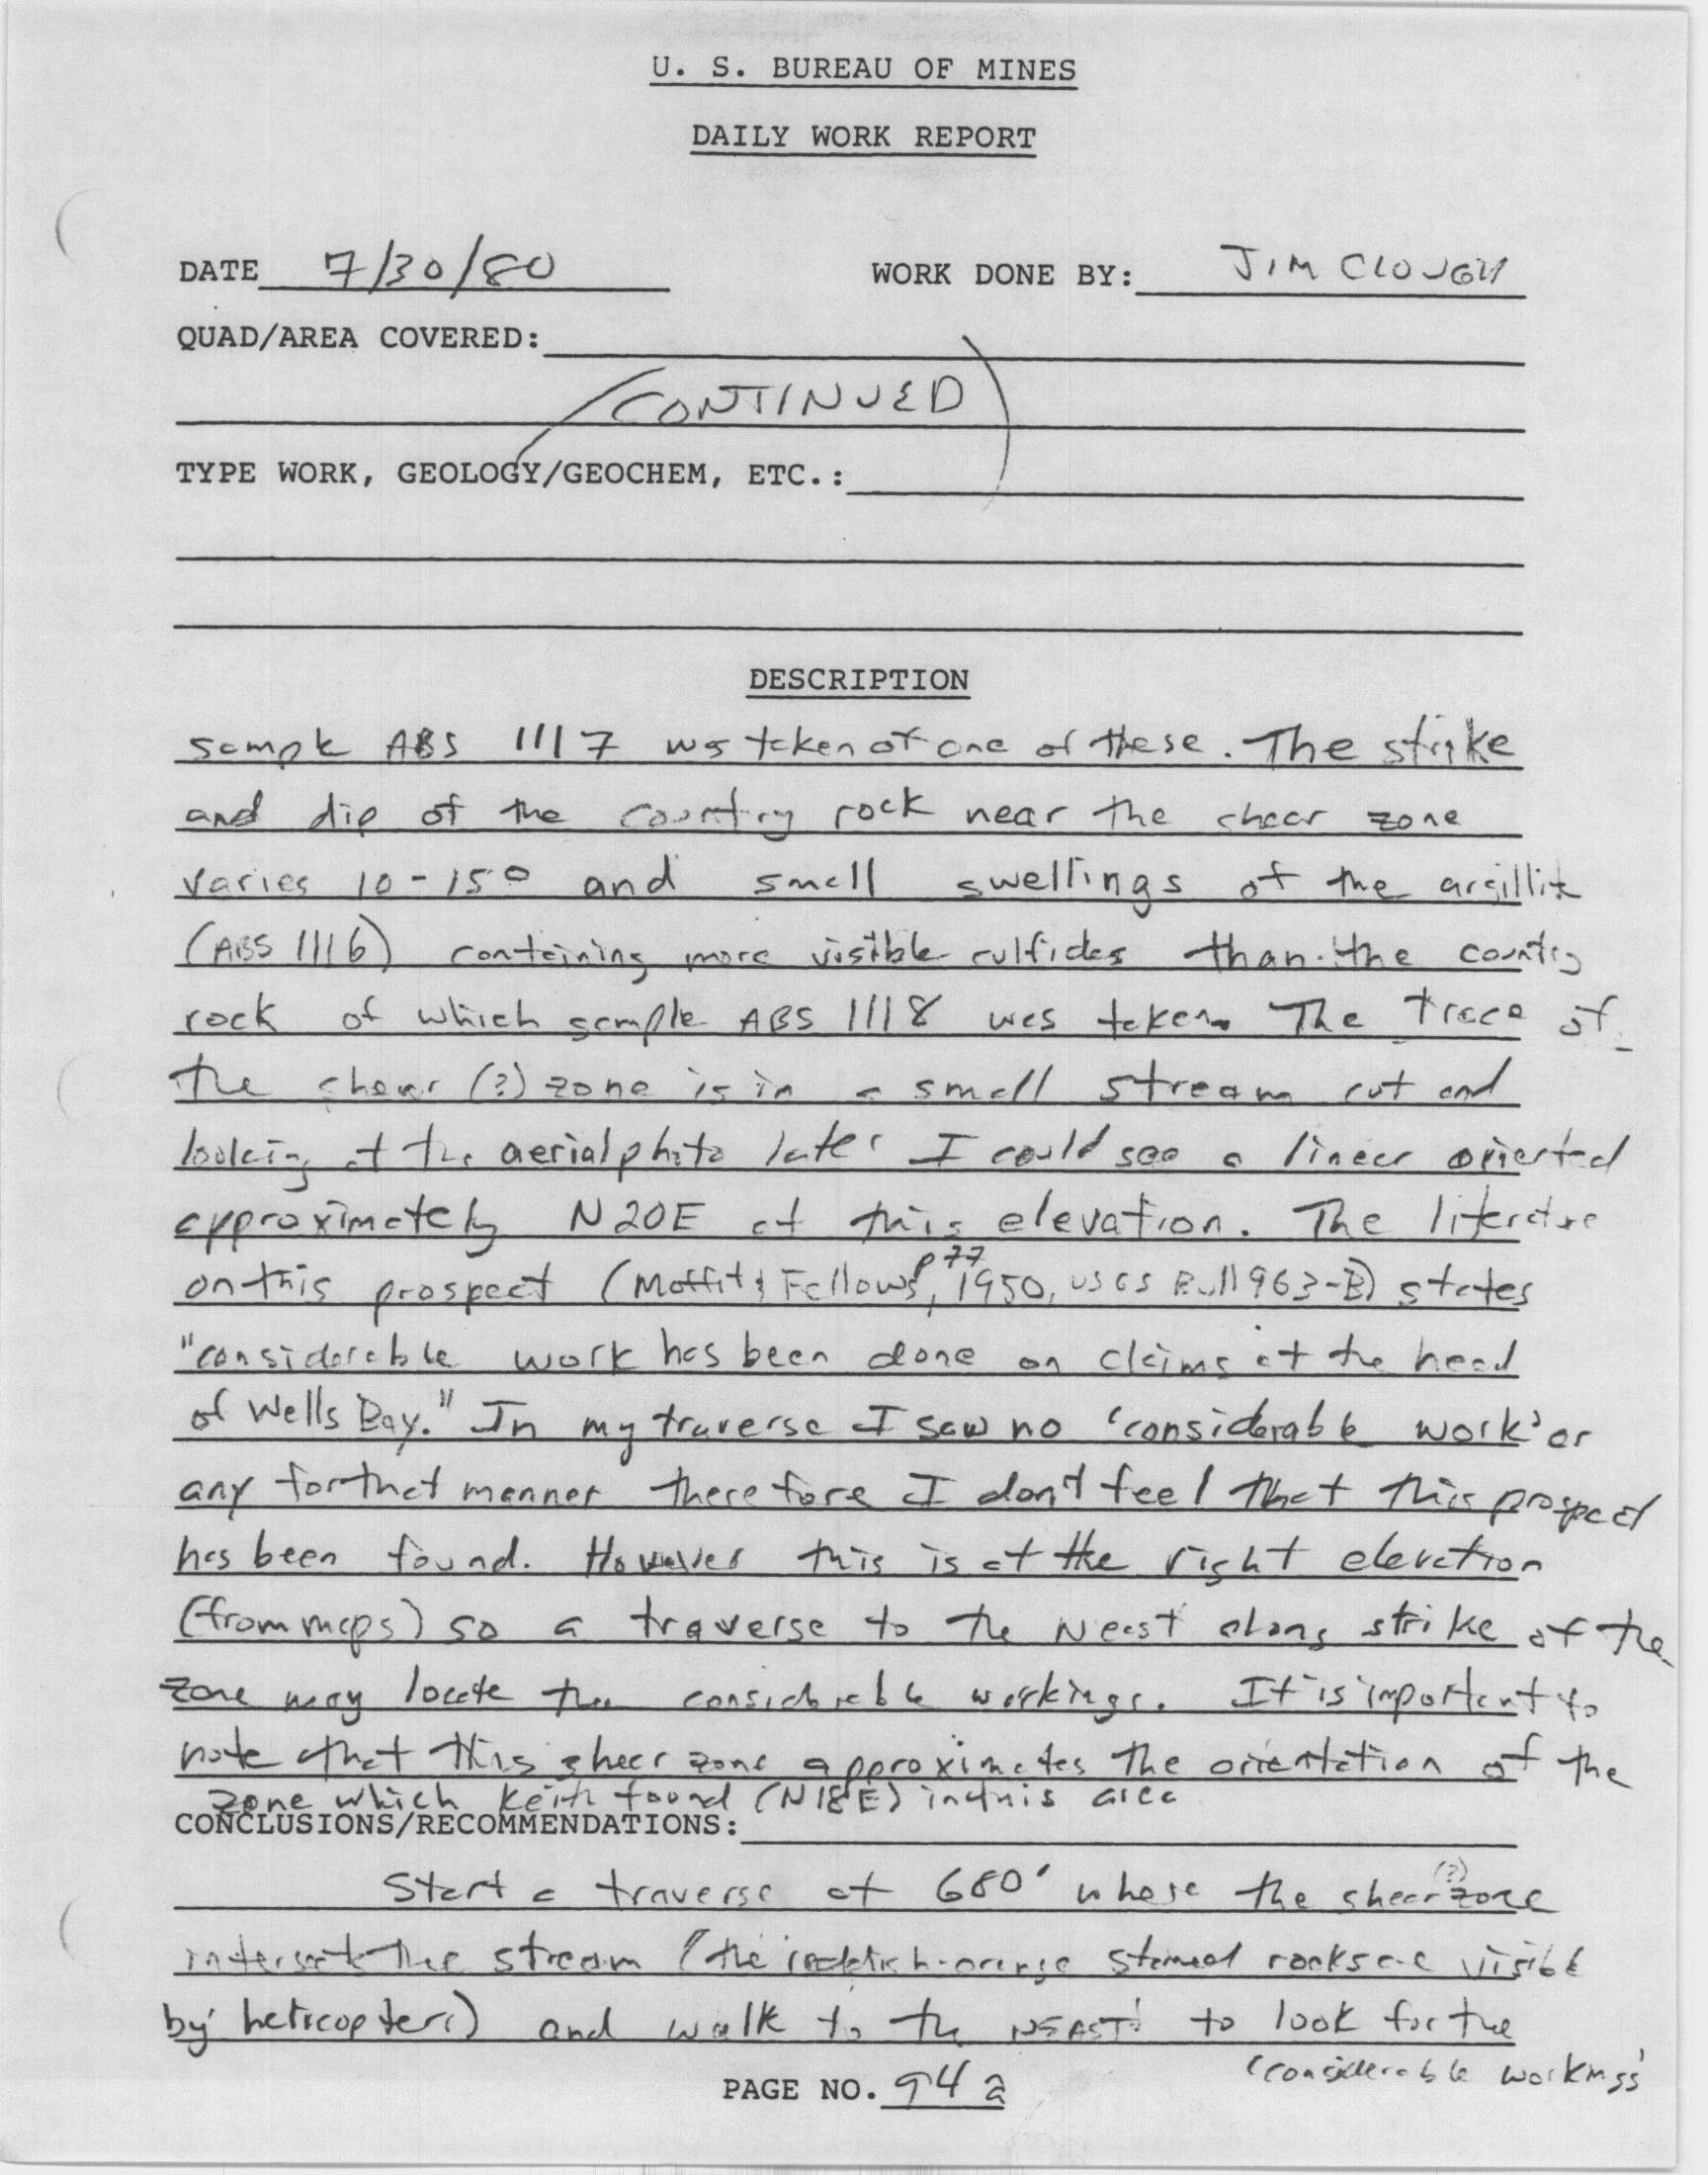 U. S. BUREAU OF MINES
DAILY WORK REPORT
DATE 7/30/80 WORK DONE BY: JIM CLOUGH
QUAD/AREA COVERED:
(CONTINUED)
TYPE WORK, GEOLOGY/GEOCHEM, ETC.:
DESCRIPTION
sample ABS 1117 was taken of one of these. The strike
and dip of the country rock near the shear zone
varies 10-15° and small swellings of the argillite
(ABS 1116) containing more visible sulfides than the country
rock of which sample ABS 1118 was taken. The trace of
the shear (?) zone is in a small stream cut and
looking at the aerial photo later I could see a linear oriented
approximately N20E at this elevation. The literature
on this prospect (Moffit & Fellows, p77 1950, USGS Bull 963-B) states
"considerable work has been done on claims at the head
of Wells Bay." In my traverse I saw no 'considerable work' or
any for that manner therefore I don't feel that this prospect
has been found. However this is at the right elevation
(from maps) so a traverse to the Neast along strike of the
zone may locate the considerable workings. It is important to
note that this shear zone approximates the orientation of the
zone which Keith found (N18E) in this area
CONCLUSIONS/RECOMMENDATIONS:
Start a traverse at 680' where the shear (?) zone
intersects the stream (the reddish-orange stained rocks are visible
by helicopter) and walk to the NEAST to look for the
'considerable workings'
PAGE NO. 94a